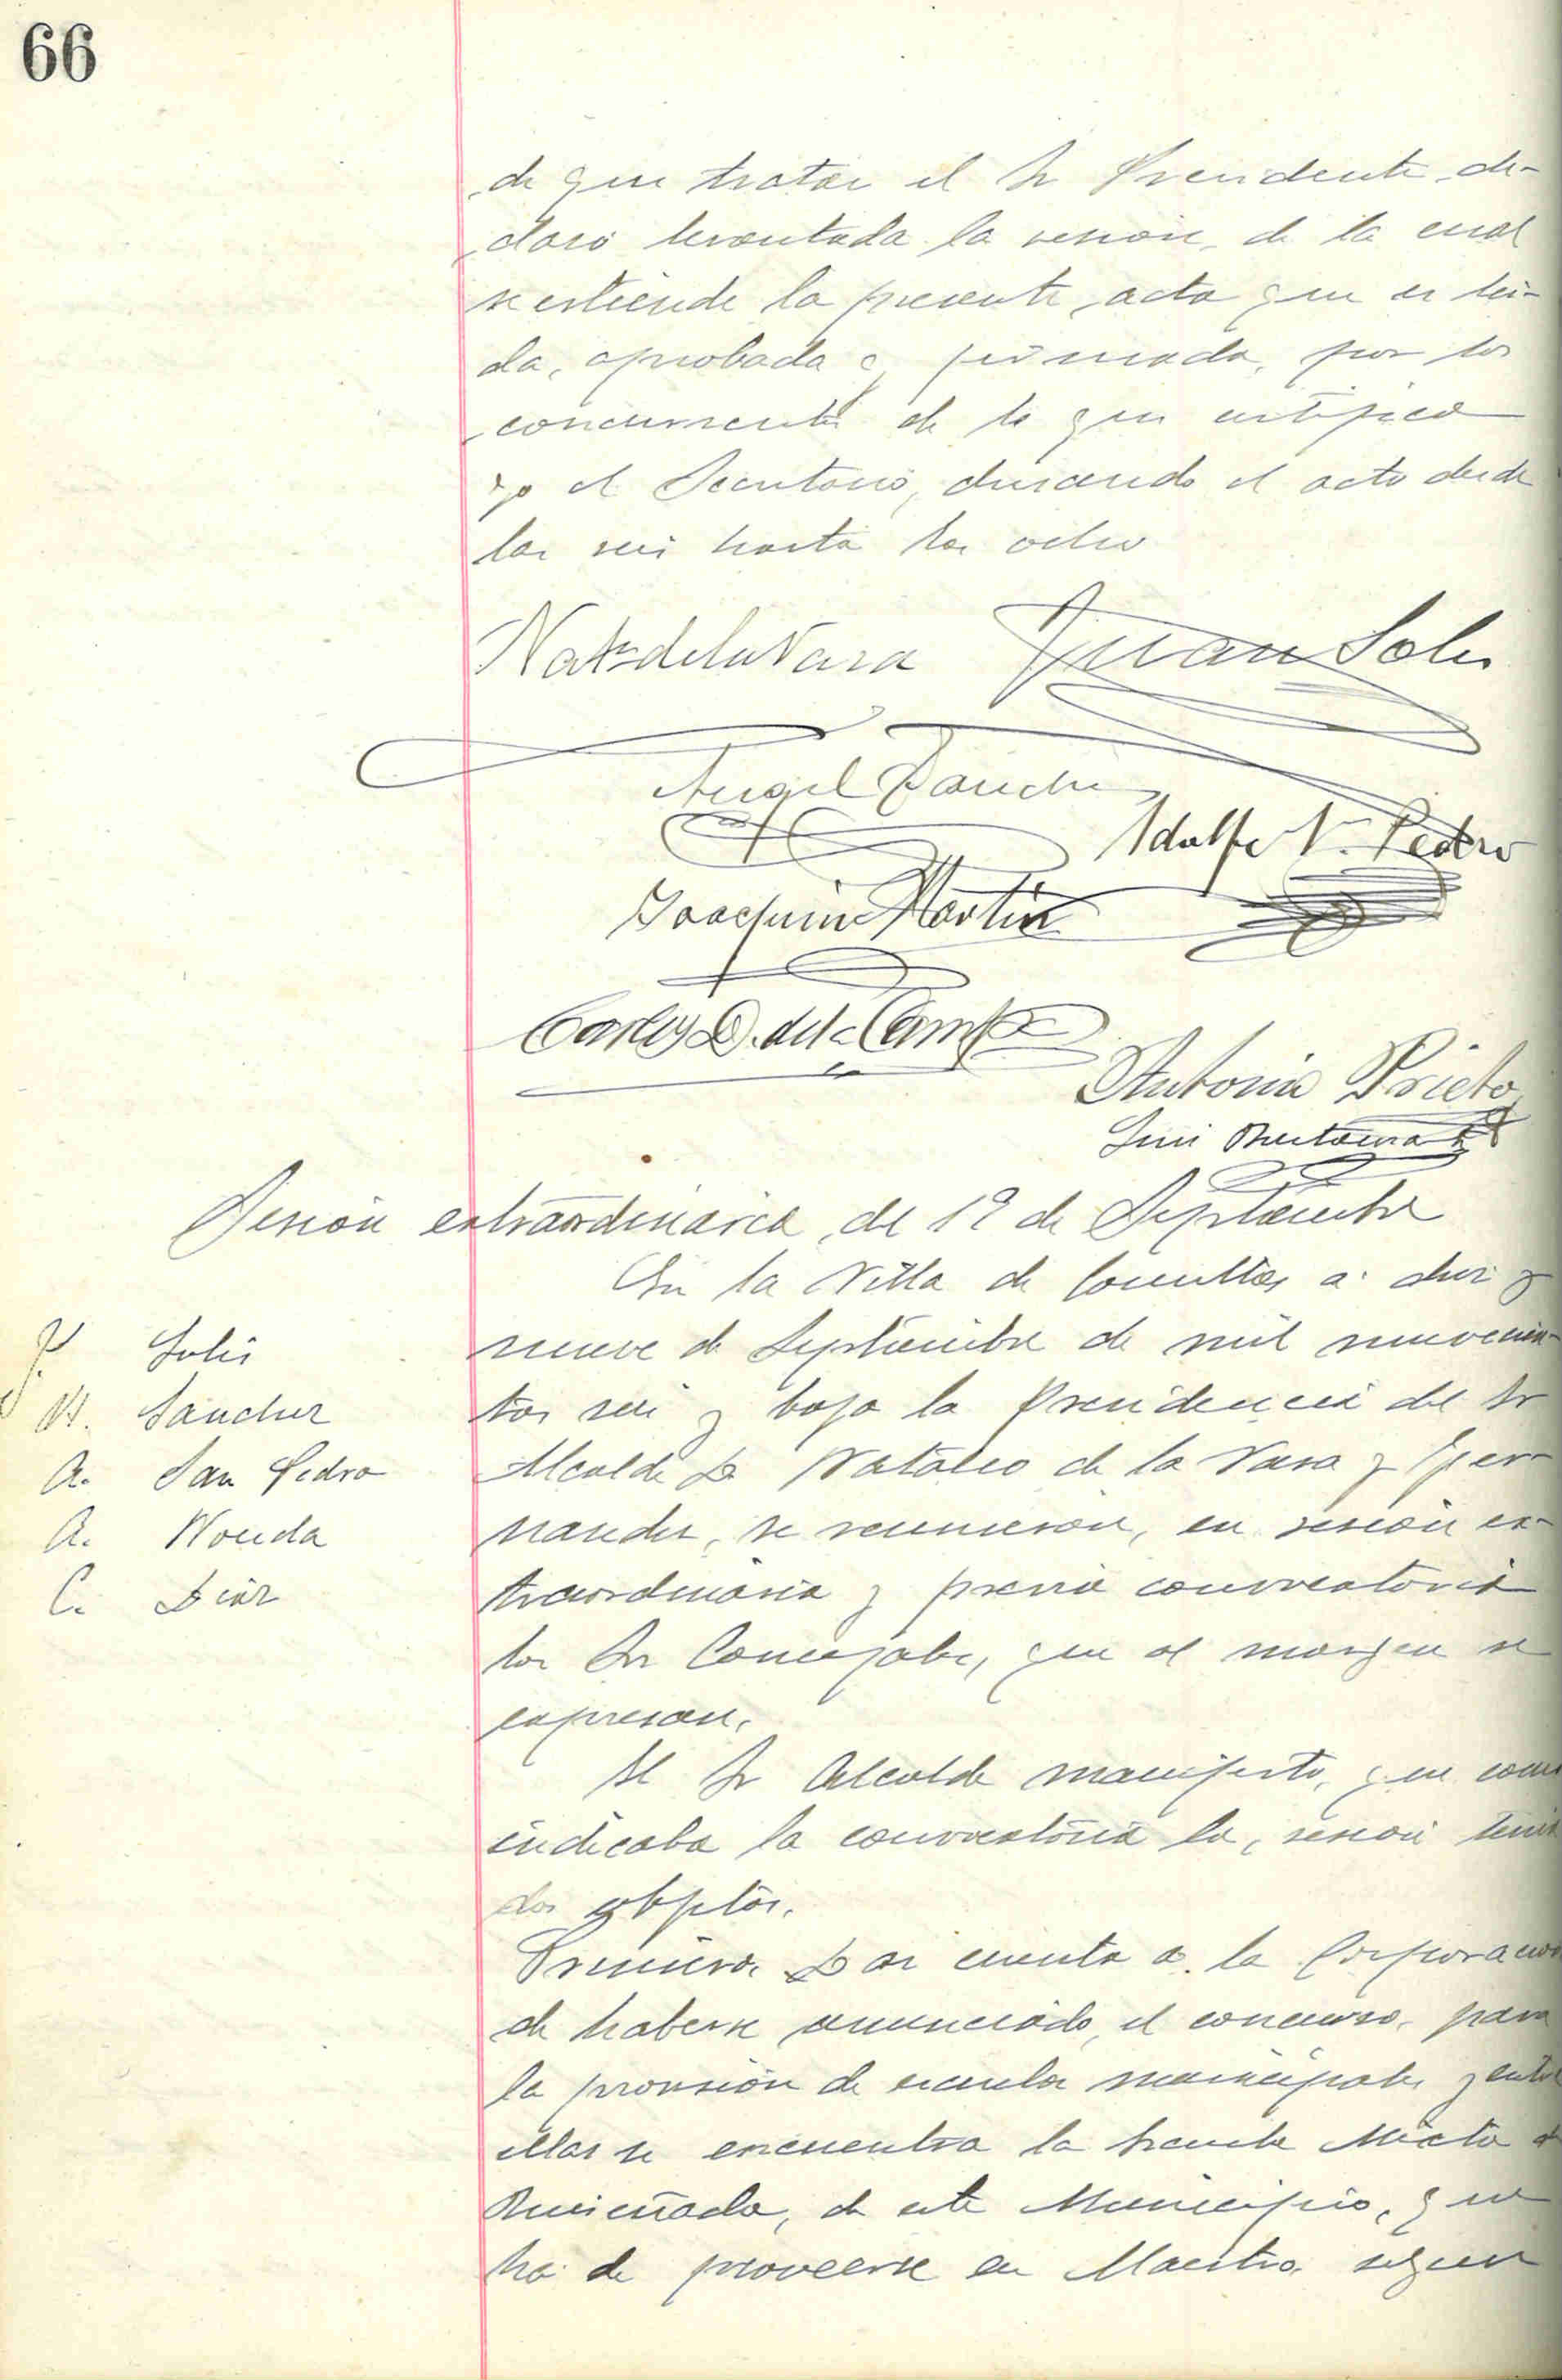 66
de que tratar el Sr Presidente de-
claró levantada la sesión, de la cual
se estiende la presente acta que es lei-
da, aprobada y firmada, por los
concurrentes de lo que certifico
yo el Secretario, durando el acto desde
las seis hasta las ocho
Nat. de la Vara Juan Solis
Angel Sanchez
Adolfo S. Pedro
Joaquin Martin
Carlos D. del Campo
Antonio Prieto
Luis
Sesión extraordinaria, del 19 de Septiembre
En la Villa de Comillas a diez y
nueve de Septiembre de mil novecien-
tos seis y bajo la Presidencia del Sr
Alcalde D Natalio de la Vara y Fer-
nandez, se reunieron, en sesión ex-
traordinaria y previa convocatoria
los Sres Concejales, que al margen se
expresan.
J. Solis
A. Sanchez
A. San Pedro
A. Noceda
C. Diaz
El Sr Alcalde manifestó, que como
indicaba la convocatoria la, sesión tenia
dos objetos.
Primero. Dar cuenta a la Corporacion
de haberse anunciado, el concurso, para
la provisión de escuelas municipales y entre
ellas se encuentra la Escuela Mixta de
Ruiseñada, de este Municipio, que
ha de proveerse en Maestro, segun